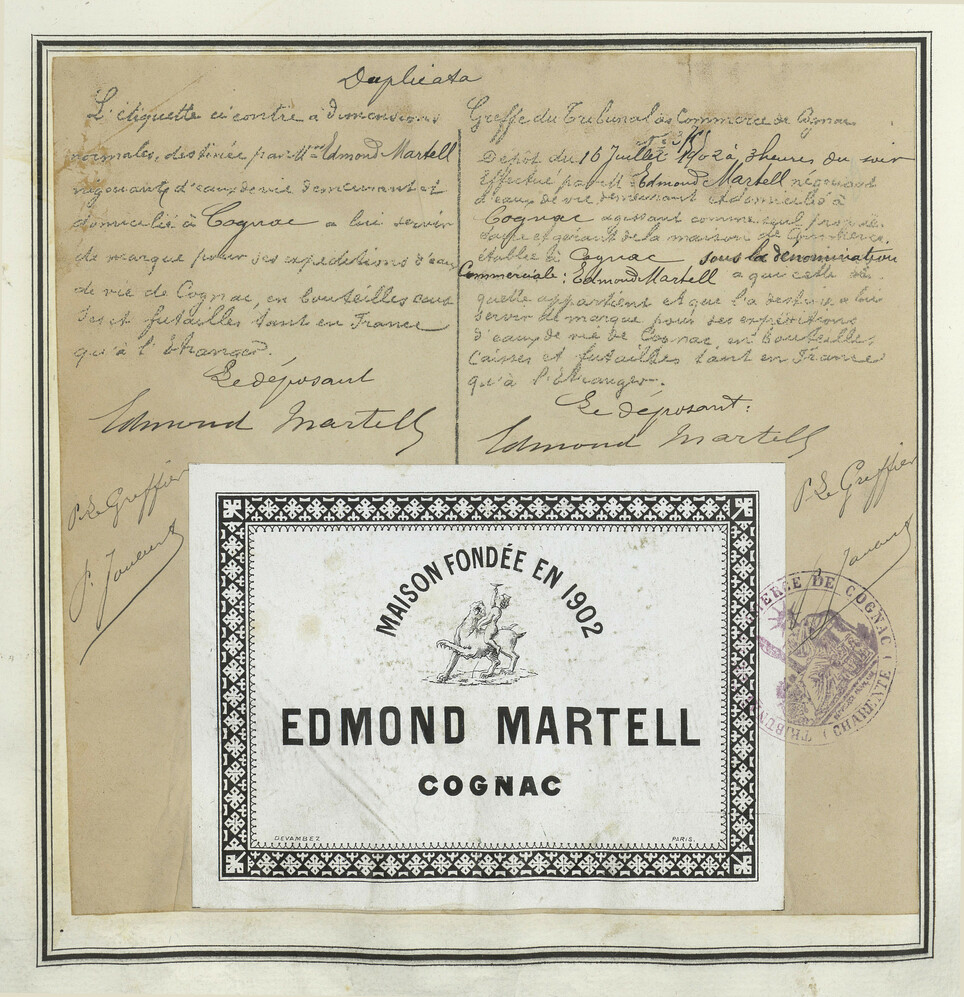 Duplicata
L'étiquette ci contre à dimensions
normales, destinée par Mr Edmond Martell
négociant d'eaux de vie demeurant et
domicilié à Cognac a lui servir
de marque pour ses expéditions d'eaux
de vie de Cognac, en bouteilles, cais
ses et futailles tant en France
qu'à l'Etranger.
Le déposant
Edmond Martell
P. Le Greffier
P. Jouant
Greffe du Tribunal de Commerce de Cognac
Dépôt du 16 Juillet 1902 à 3 heures du soir
Effectué par M. Edmond Martell négociant
d'eaux de vie demeurant et domicilié à
Cognac agissant comme seul proprié-
taire et gérant de la maison de Commerce,
établie à Cognac sous la dénomination
Commerciale: Edmond Martell a qui cette éti-
quette appartient et que l'a destinée a lui
servir de marque pour ses expéditions
d'eaux de vie de Cognac, en bouteilles,
Caisses et futailles tant en France
qu'à l'Etranger.
Le déposant:
Edmond Martell
P. Le Greffier
MAISON FONDÉE EN 1902
EDMOND MARTELL
COGNAC
DEVAMBEZ PARIS
TRIBUNAL DE COMMERCE DE COGNAC (CHARENTE)